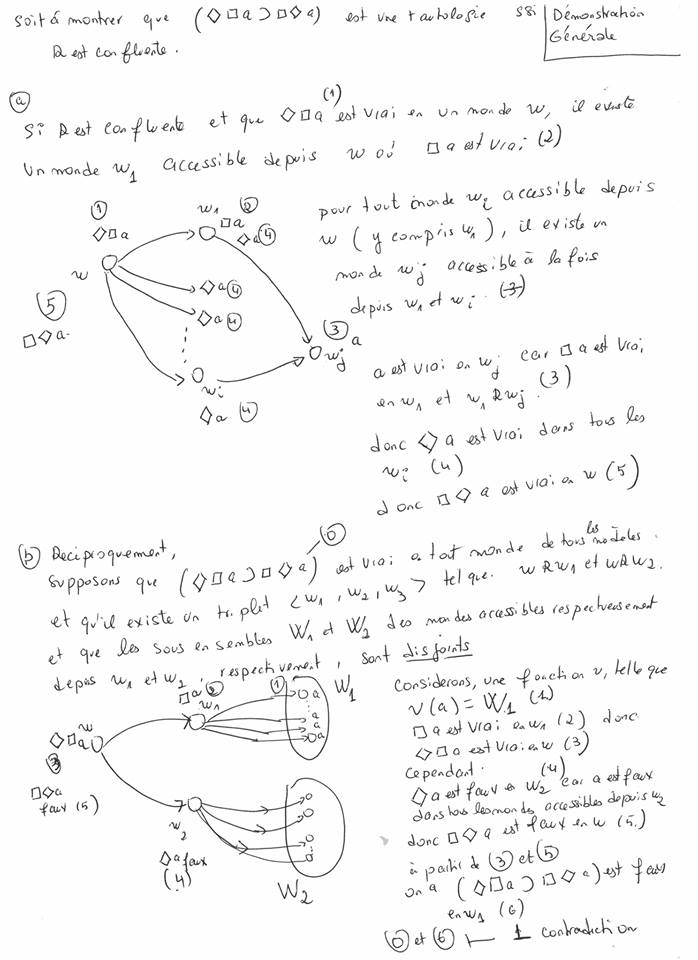 soit à montrer que (◇□a ⊃ □◇a) est une tautologie ssi
R est confluente.
Démonstration
Générale
(a)
(1)
Si R est confluente et que ◇□a est vrai en un monde w, il existe
un monde w1 accessible depuis w où □a est vrai (2)
(1)
◇□a
w
(5)
□◇a
w1 (2)
□a
◇a (4)
◇a (4)
◇a (4)
wi
◇a (4)
(3)
wj a
pour tout monde wi accessible depuis
w (y compris w1), il existe un
monde wj accessible à la fois
depuis w1 et wi. (3)
a est vrai en wj car □a est vrai
en w1 et w1 R wj. (3)
donc ◇a est vrai dans tous les
wi (4)
donc □◇a est vrai en w (5)
(b) Réciproquement,
(0)
supposons que (◇□a ⊃ □◇a) est vrai en tout monde de tous les modèles.
et qu'il existe un triplet <w1, w2, w3> tel que. w R w1 et w R w2.
et que les sous ensembles W1 et W2 des mondes accessibles respectivement
depuis w1 et w2, respectivement, sont disjoints
◇□a w
(3)
□◇a
faux (5)
□a (2)
w1
(1)
W1
a
a
a
a
w2
◇a faux
(4)
W2
Considerons, une fonction v, telle que
v(a) = W1 (1)
□a est vrai en w1 (2) donc
◇□a est vrai en w (3)
Cependant.
◇a est faux en w2 (4) car a est faux
dans tous les mondes accessibles depuis w2
donc □◇a est faux en w (5)
à partir de (3) et (5)
on a (◇□a ⊃ □◇a) est faux
en w1 (6)
(0) et (6) ⊢ ⊥ contradiction